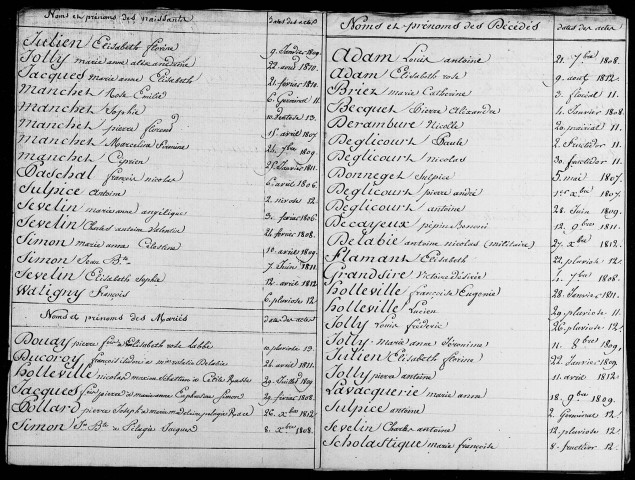 Noms et prénoms des naissants dates des actes
Julien Elisabeth florine 9. Janvier 1809.
Jolly marie anne alexandrine 22. aoud 1810.
Jacques marie anne Elisabeth 21. février 1810.
Manchet Rose Emilie 6. Germinal 11.
Manchet Sophie 10. Ventose 13.
Manchet pierre florend 15. avril 1807.
Manchet Marceline Firmine 24. 7bre 1809.
Manchet Ciprien 25. Janvier 1811.
Paschal françois nicolas 6. avril 1806.
Sulpice Antoine 2. nivose 12.
Sevelin marie anne angélique 3. février 1806.
Sevelin Charles antoine Valentin 21. février 1808.
Simon marie anne Célestine 10. avril 1809.
Simon Jean Bte. 7. Juin 1811.
Sevelin Elisabeth Sophie 12. avril 1812.
Watigny françois 6. pluviose 12.
Noms et prénoms des Mariés dates des actes
Douay pierre Elisabeth rose 10. pluviose 13.
Ducoroy 26. avril 1811.
Holleville nicolas maxime Sebastien 29. Juillet 1809.
Jacques marie anne Euphrasine Simon 29. février 1808.
Dollard pierre Joseph & marie madeleine pelagie 26. Xbre 1812.
Simon Jn. Bte. & Pelagie Jacques 8. Xbre 1808.
Noms et prénoms des Décédés dates des actes
Adam Louis antoine 21. 7bre 1808.
Adam Elisabeth rose 9. aout 1812.
Briez marie Catherine 3. floréal 11.
Becquet Pierre Alexandre 4. Janvier 1808.
Derambure Nicolle 20. prairial 11.
Deglicourt Paule 2. fructidor 11.
Deglicourt nicolas 30. fructidor 11.
Donneget Sulpice 5. mai 1807.
Deglicourt pierre andré 1er Xbre 1807.
Deglicourt antoine 28. Juin 1809.
Decayeux 12. 9bre 1811.
Delabie antoine nicolas (militaire) 27. Xbre 1812.
Flamant Elisabeth 22. pluviose 11.
Grandsire Victoire désirée 4. 7bre 1808.
Holleville françoise Eugenie 28. Janvier 1811.
Holleville Lucien 29. pluviose 11.
Jolly Louis fréderic 26. pluviose 12.
Jolly marie anne firmine 11. 8bre 1809.
Julien Elisabeth florine 22. Janvier 1809.
Jolly pierre antoine 11. avril 1812.
Lavacquerie marie anne 18. 9bre 1809.
Sulpice antoine 2. Germinal 12.
Sevelin Charles antoine 12. pluviose 12.
Scholastique marie françoise 8. fructidor 12.